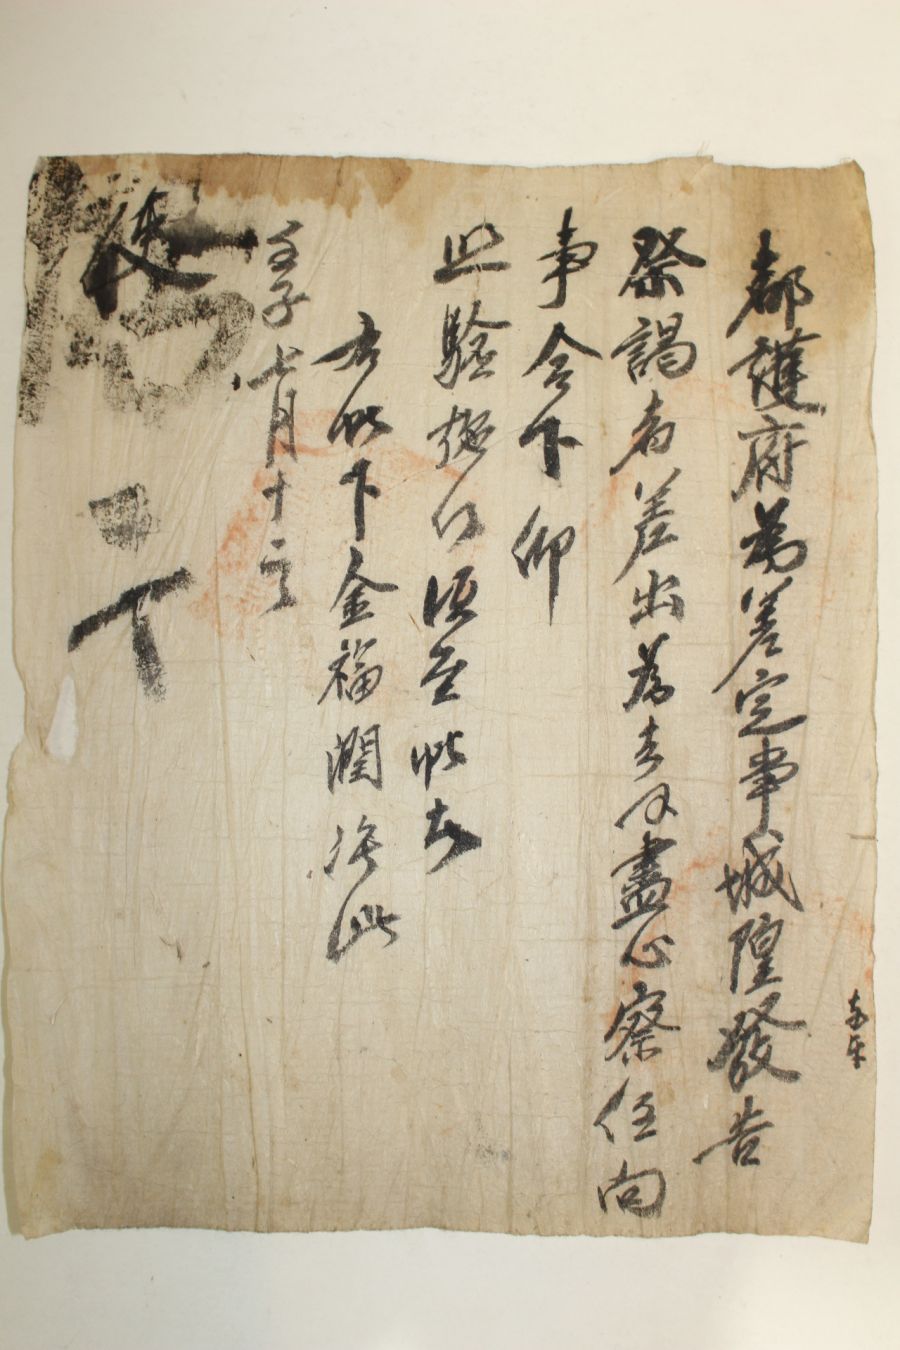 都護府爲差定事城隍發告
祭謁者差出爲去乎盡心察任向
事合下仰
照驗施行須至帖者
右帖下金福潤准此
壬子七月十二日
使
帖
下